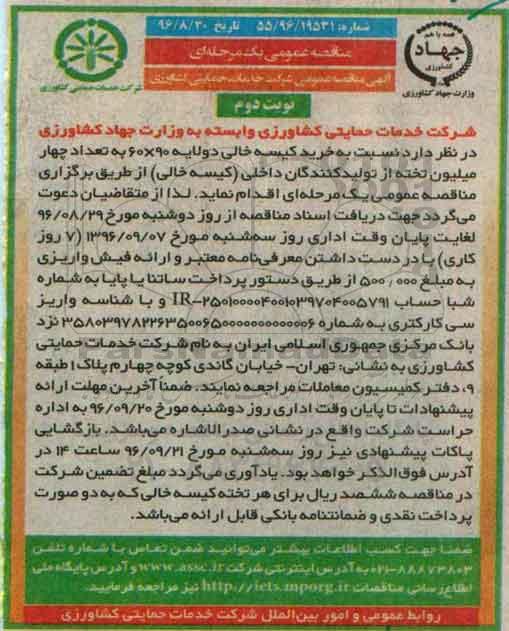 شماره: ۵۵/۹۶/۱۹۵۳۱ تاریخ ۹۶/۸/۳۰
همه با هم
جهاد
کشاورزی
وزارت جهاد کشاورزی
شرکت خدمات حمایتی کشاورزی
مناقصه عمومی یک مرحله‌ای
آگهی مناقصه عمومی شرکت خدمات حمایتی کشاورزی
نوبت دوم
شرکت خدمات حمایتی کشاورزی وابسته به وزارت جهاد کشاورزی
در نظر دارد نسبت به خرید کیسه خالی دولایه ۹۰×۶۰ به تعداد چهار
میلیون تخته از تولیدکنندگان داخلی (کیسه خالی) از طریق برگزاری
مناقصه عمومی یک مرحله‌ای اقدام نماید. لذا از متقاضیان دعوت
می‌گردد جهت دریافت اسناد مناقصه از روز دوشنبه مورخ ۹۶/۰۸/۲۹
لغایت پایان وقت اداری روز سه‌شنبه مورخ ۱۳۹۶/۰۹/۰۷ (۷ روز
کاری) با در دست داشتن معرفی‌نامه معتبر و ارائه فیش واریزی
به مبلغ ۵۰۰/۰۰۰ از طریق دستور پرداخت ساتنا یا پایا به شماره
شبا حساب IR-۲۵۰۱۰۰۰۰۴۰۰۱۰۳۹۷۰۴۰۰۵۷۹۱ و با شناسه واریز
سی کارکتری به شماره ۳۵۸۰۳۹۷۸۲۲۶۳۵۰۰۶۵۰۰۰۰۰۰۰۰۰۰۰۰۶ نزد
بانک مرکزی جمهوری اسلامی ایران به نام شرکت خدمات حمایتی
کشاورزی به نشانی: تهران- خیابان گاندی کوچه چهارم پلاک ۱ طبقه
۹، دفتر کمیسیون معاملات مراجعه نمایند. ضمناً آخرین مهلت ارائه
پیشنهادات تا پایان وقت اداری روز دوشنبه مورخ ۹۶/۰۹/۲۰ به اداره
حراست شرکت واقع در نشانی صدرالاشاره می‌باشد. بازگشایی
پاکات پیشنهادی نیز روز سه‌شنبه مورخ ۹۶/۰۹/۲۱ ساعت ۱۴ در
آدرس فوق‌الذکر خواهد بود. یادآوری می‌گردد مبلغ تضمین شرکت
در مناقصه ششصد ریال برای هر تخته کیسه خالی که به دو صورت
پرداخت نقدی و ضمانتنامه بانکی قابل ارائه می‌باشد.
ضمناً جهت کسب اطلاعات بیشتر می‌توانید ضمن تماس با شماره تلفن
۰۲۱-۸۸۸۷۳۸۰۳ به آدرس اینترنتی شرکت www.assc.ir و آدرس پایگاه ملی
اطلاع‌رسانی مناقصات http://iets.mporg.ir نیز مراجعه فرمایید.
روابط عمومی و امور بین‌الملل شرکت خدمات حمایتی کشاورزی